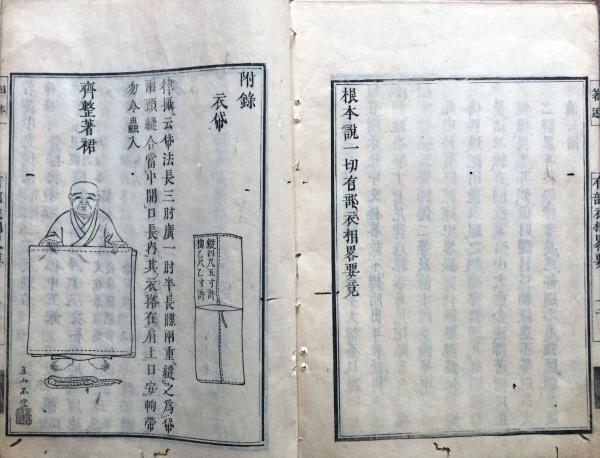 根本說一切有部衣相畧要竟
有部衣相畧要
附錄
衣帒
縱四尺五寸許
橫乙尺乙寸許
律攝云帒法長三肘廣一肘半長牒兩重縫之爲帒
兩頭縫合當中開口長內其衣搭在肩上口安䩕帶
勿令蟲入
齊整著裙